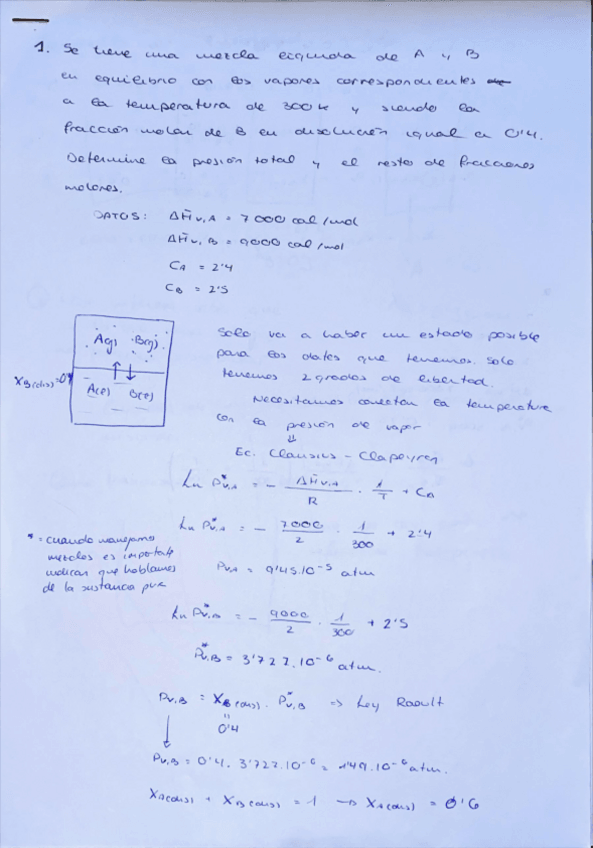 1. Se tiene una mezcla líquida de A y B
en equilibrio con los vapores correspondientes
a la temperatura de 300 K y siendo la
fracción molar de B en disolución igual a 0'4.
Determine la presión total y el resto de fracciones
molares.
DATOS: ΔH̃v,A = 7000 cal/mol
ΔH̃v,B = 9000 cal/mol
CA = 2'4
CB = 2'5
A(g) B(g)
XB(dis)=0'4
A(l) B(l)
Solo va a haber un estado posible
para los datos que tenemos. Solo
tenemos 2 grados de libertad.
Necesitamos conectar la temperatura
con la presión de vapor
⇓
Ec. Clausius - Clapeyron
Ln P*v,A = - ΔH̃v,A / R · 1/T + CA
Ln P*v,A = - 7000/2 · 1/300 + 2'4
* = cuando manejamos
mezclas es importante
indicar que hablamos
de la sustancia pura
Pv,A = 9'45·10⁻⁵ atm
Ln P*v,B = - 9000/2 · 1/300 + 2'5
P*v,B = 3'727·10⁻⁶ atm.
Pv,B = XB(dis) · P*v,B => Ley Raoult
"
0'4
Pv,B = 0'4 · 3'727·10⁻⁶ = 1'49·10⁻⁶ atm.
XA(dis) + XB(dis) = 1 → XA(dis) = 0'6